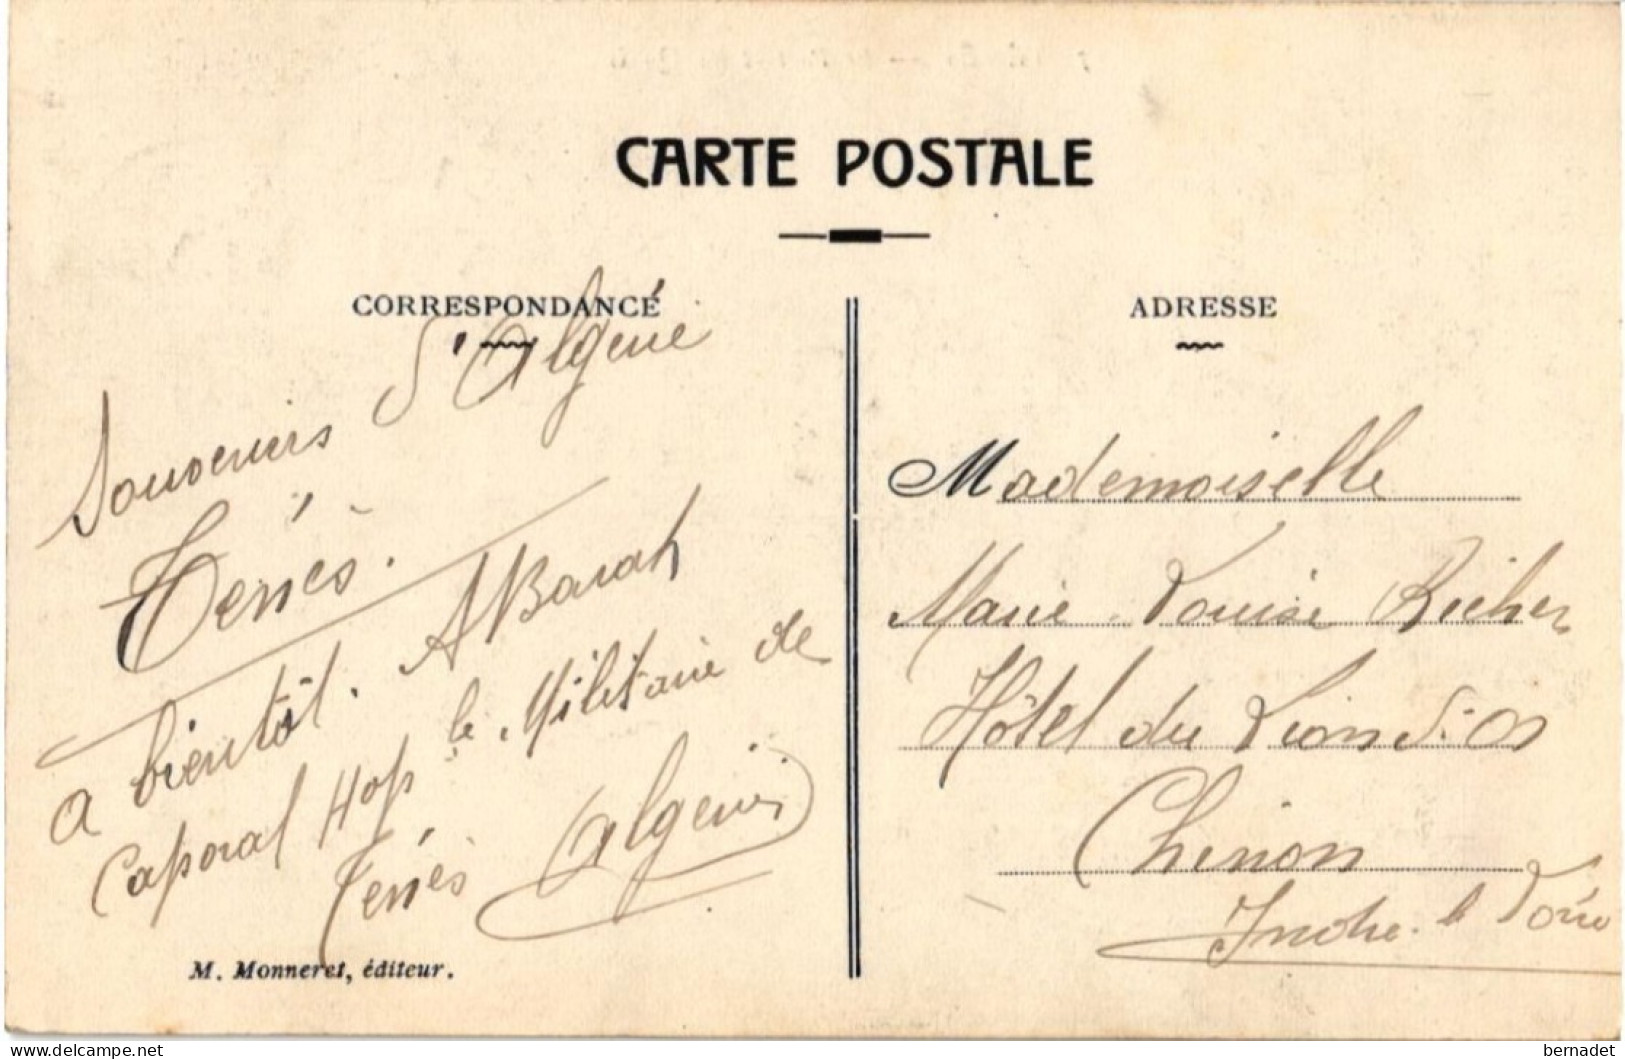 CARTE POSTALE
CORRESPONDANCE
Souvenirs d'Algérie
Ténès.
a bientôt. ABarah
Caporal Hop le Militaire de
Ténès Algérie
M. Monneret, éditeur.
ADRESSE
Mademoiselle
Marie Louise Richer
Hôtel du Lion d'Or
Chinon
Indre & Loire
delcampe.net
bernadet